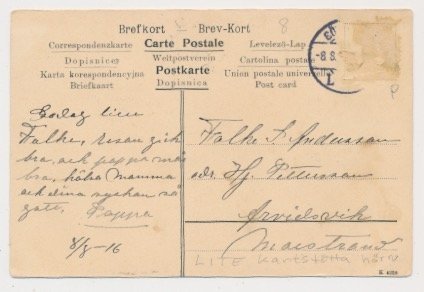 Brefkort Brev-Kort 8
Correspondenzkarte Carte Postale Levelező-Lap
Dopisnice Weltpostverein Cartolina postale
Karta korespondencyjna Postkarte Union postale universelle
Briefkaart Dopisnica Post card
-8. 8.
Godag lien
Falke, resan gick
bra, och pappa mår
bra, hälsa mamma
och dina syskon så
gott, Pappa
8/8-16
Falke S. Andersson
adr. Hj. Pettersson
Arvidsvik
Marstrand
LITE kartstötta hörn